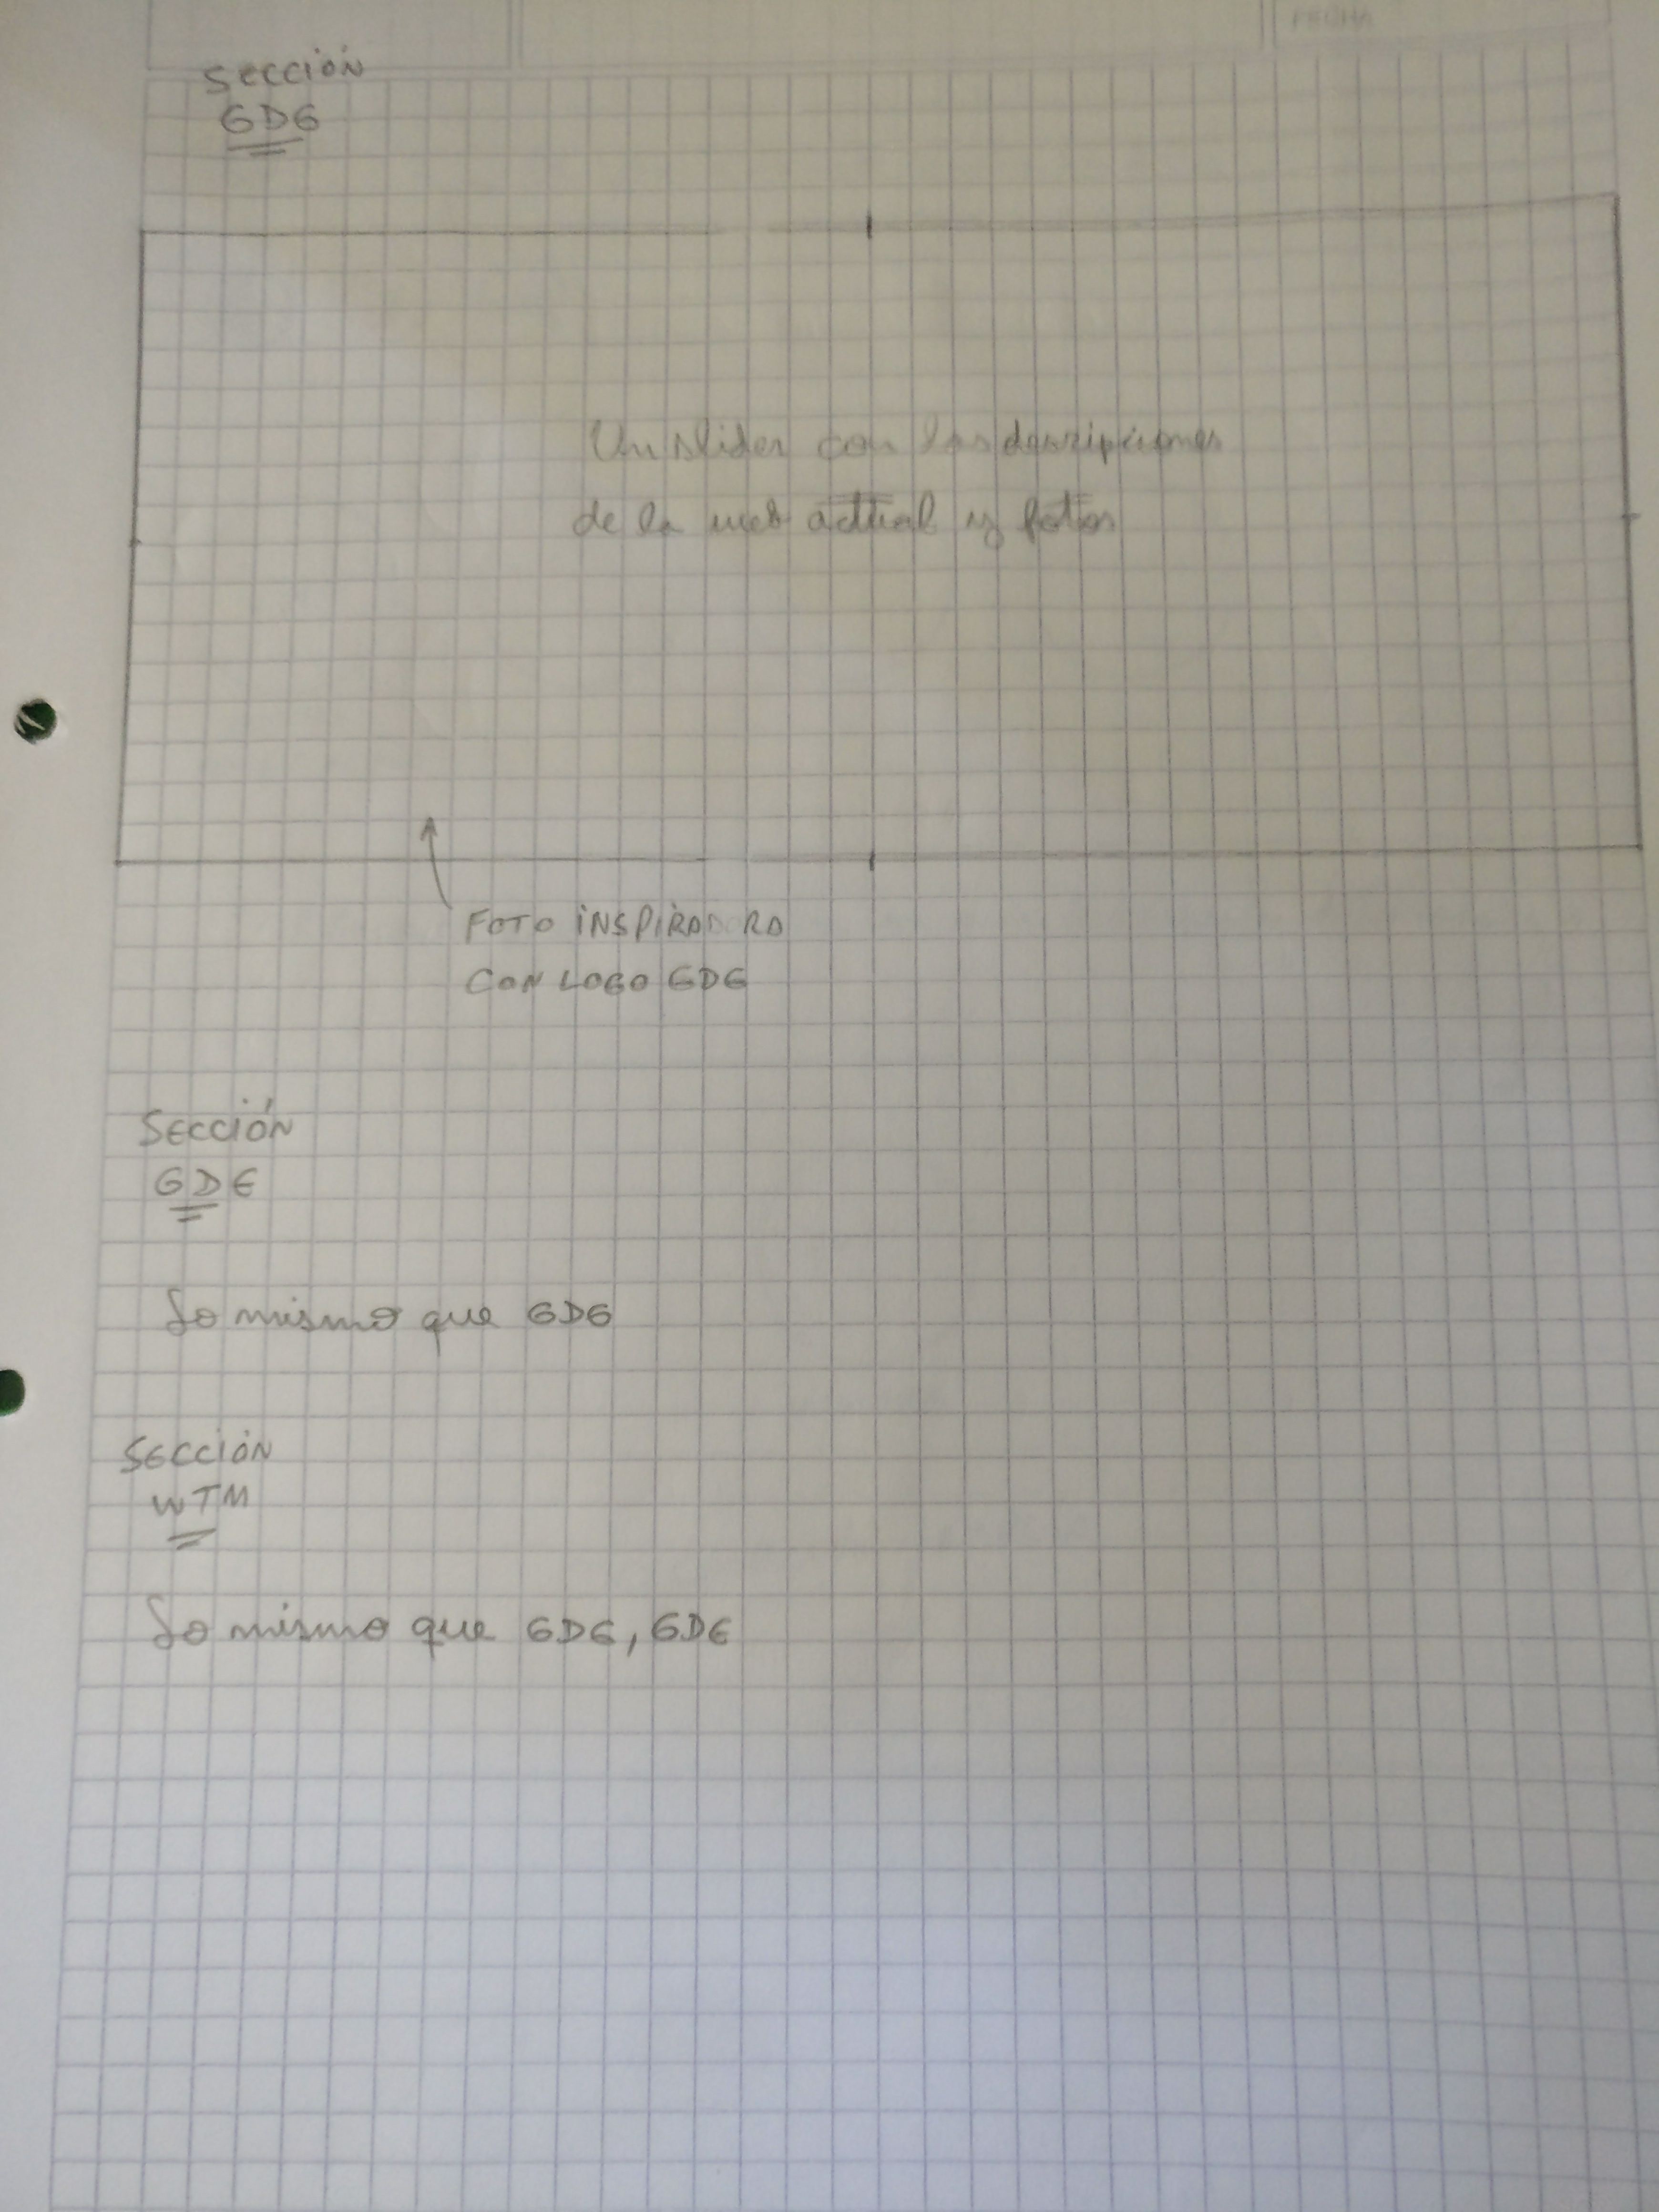 FECHA
SECCIÓN
GDG
Un slider con las descripciones
de la web actual y fotos
FOTO INSPIRADORA
CON LOGO GDG
SECCIÓN
GDE
Lo mismo que GDG
SECCIÓN
WTM
Lo mismo que GDG, GDE